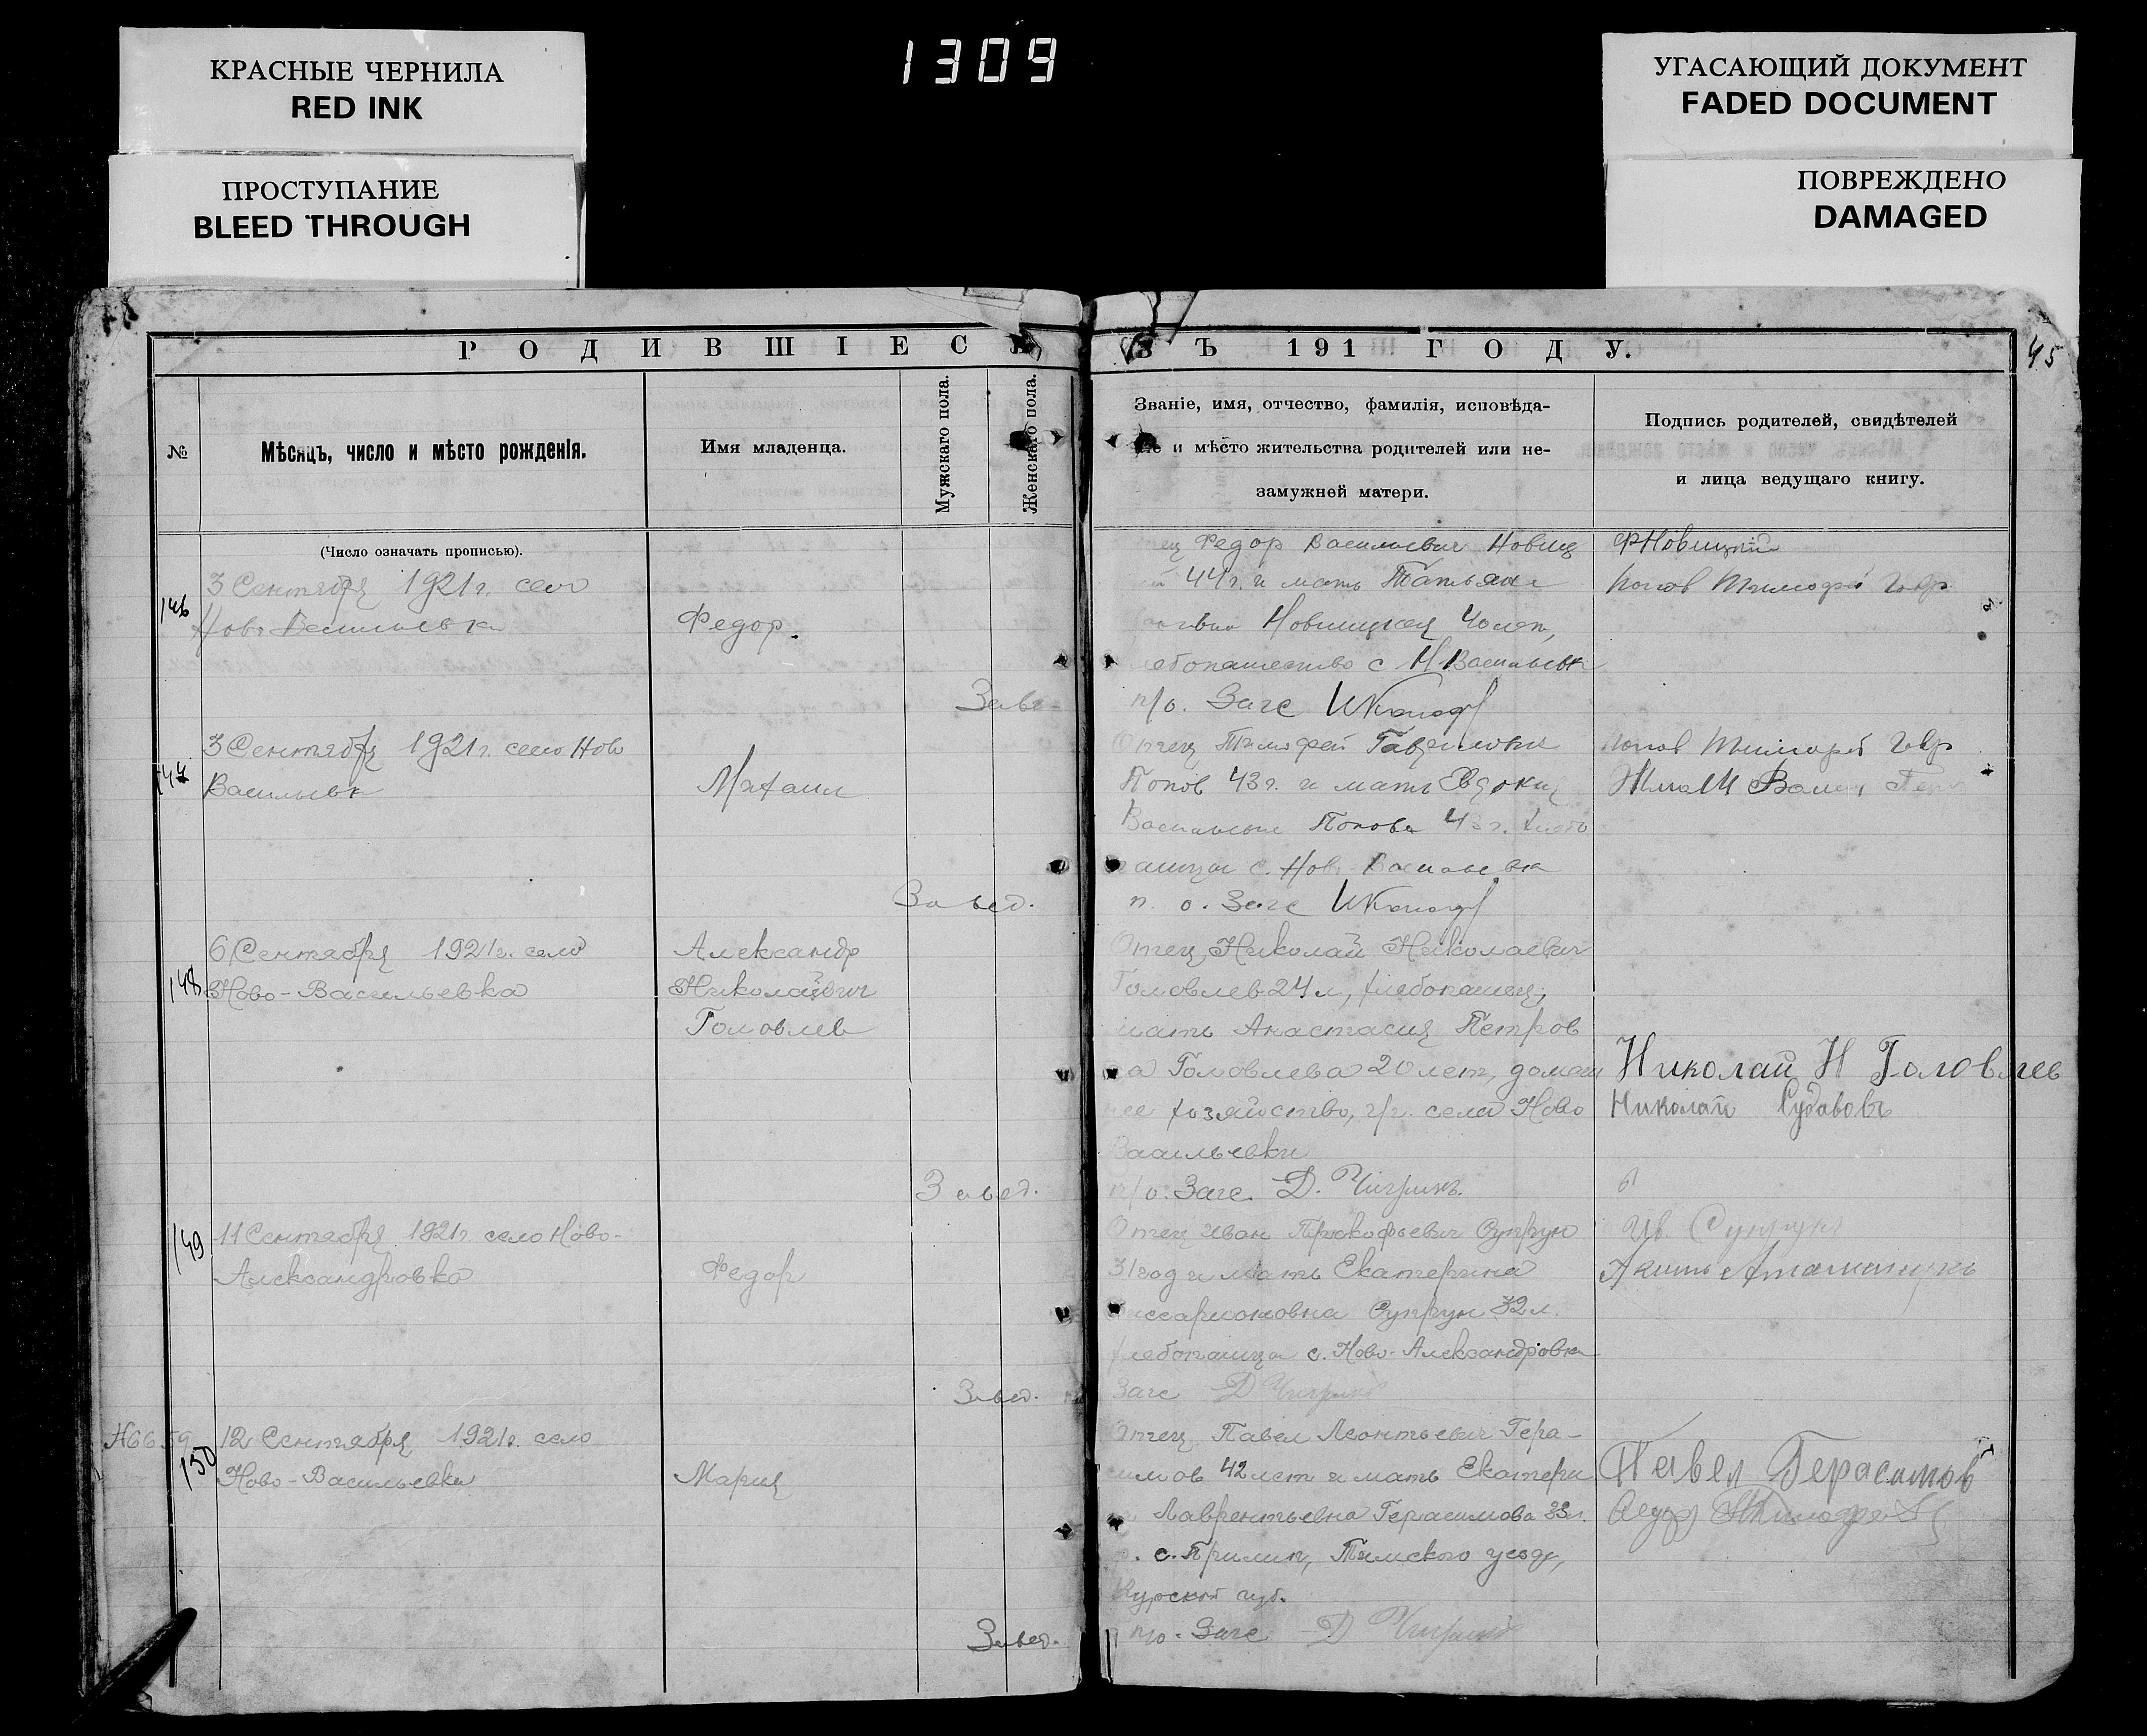 КРАСНЫЕ ЧЕРНИЛА
RED INK
ПРОСТУПАНИЕ
BLEED THROUGH
1309
УГАСАЮЩИЙ ДОКУМЕНТ
FADED DOCUMENT
ПОВРЕЖДЕНО
DAMAGED
РОДИВШІЕС
Ъ 191 ГОДУ.
45
№
Мѣсяцъ, число и мѣсто рожденія.
Имя младенца.
Мужскаго пола.
Женскаго пола.
Званіе, имя, отчество, фамилія, исповѣда-
и мѣсто жительства родителей или не-
замужней матери.
Подпись родителей, свидѣтелей
и лица ведущаго книгу.
(Число означать прописью).
146
3 Сентября 1921 г. село
Ново Васильевка
Федор.
Федор Васильевич Новиц
44 г. и мать Татьяна
Новицкая 40 лет,
с Н-Васильевк
п/о. Загс
ФНовицкий
Попов Тимофей Гавр
147
3 Сентября 1921 г. село Ново
Васильевк
Михаил
Завед.
Отец Тимофей Гаврилович
Попов 43 г. и мать Евдокия
Васильевн Попова 43 г. хлебо
с. Ново-Васильевк
п. о. Загс
Попов Тимофей Гавр
148
6 Сентября 1921 г. село
Ново-Васильевка
Александр
Николаевич
Головлев
Завед.
Отец Николай Николаевич
Головлев 24 л, хлебопашец,
мать Анастасия Петров
на Головлева 20 лет, домаш
нее хозяйство, гр. села Ново
Васильевки
п/о. Загс. Д. Чигрин.
Николай Н Головлев
Николай
149
11 Сентября 1921 г. село Ново-
Александровка
Федор
Завед.
Отец Иван Прокофьевич Супрун
31 год и мать Екатерина
Виссарионовна Супрун 32 л.
хлебопашцы с. Ново-Александровки
Загс Д Чигрин
Ив. Супрун
150
12 Сентября 1921 г. село
Ново-Васильевка
Мария
Завед.
Отец Павел Леонтьевич Гера-
симов 42 лет и мать Екатери
на Лаврентьевна Герасимова 33 г.
Тимского уезда,
Курской губ.
п/о. Загс Д Чигрин
Павел Герасимов